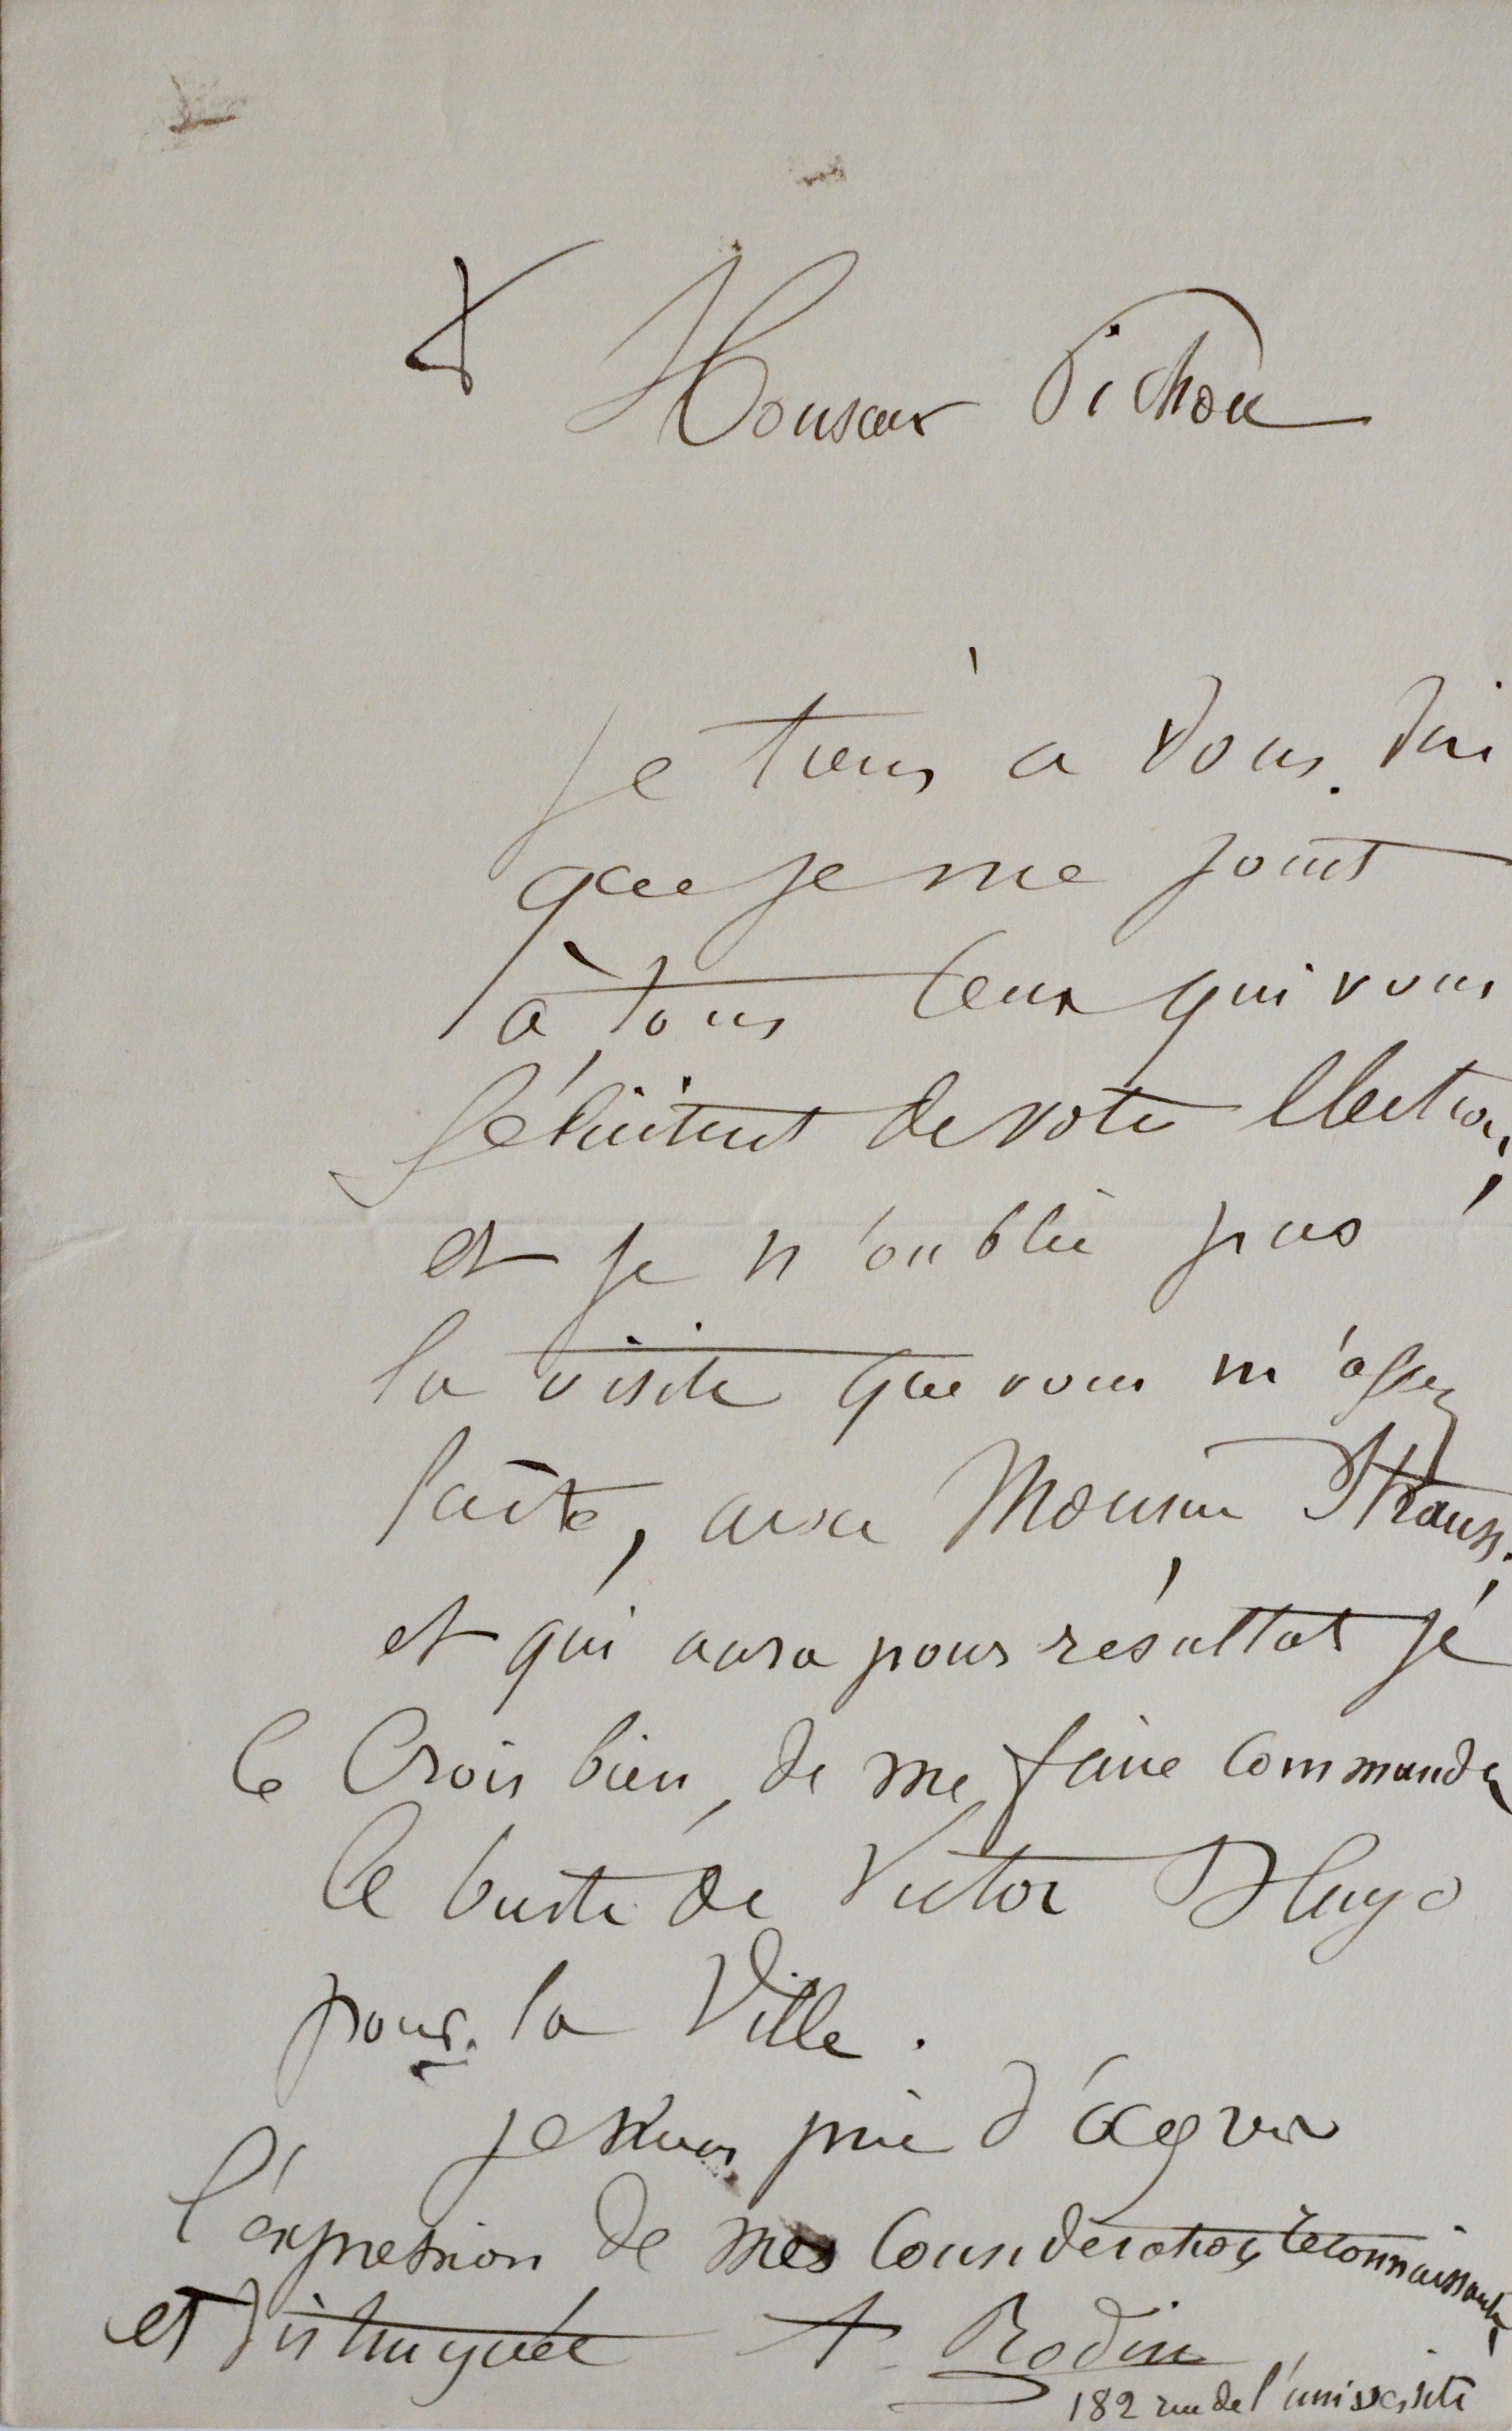 Monsieur Pichon
Je tiens à vous dire
que je me joint
à tous ceux qui vous
félicitent de votre élection,
et je n'oublie pas
la visite que vous m'
faite, avec Monsieur Strauss.
et qui aura pour résultat je
le crois bien, de me faire commander
le buste de Victor Hugo
pour la Ville.
je vous prie d'
l'expression de mes considération reconnaissante
et distinguée A. Rodin
182 rue de l'université